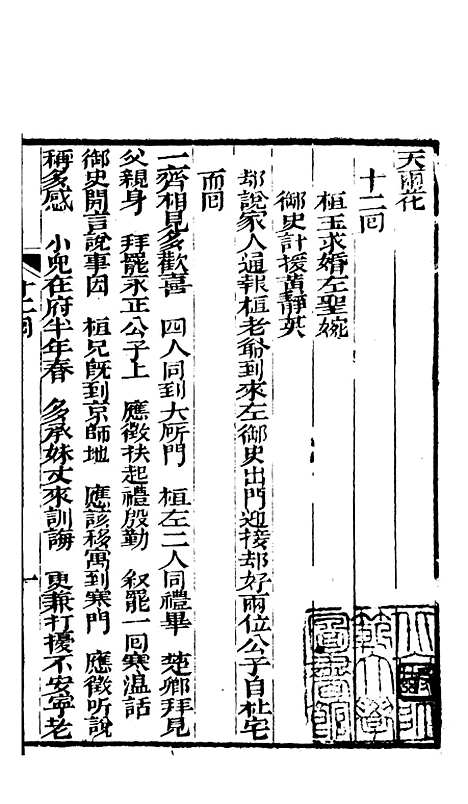 天雨花
十二回
桓玉求婚左聖婉
御史計援黃靜英
却說家人通報桓老爺到來左御史出門迎接却好兩位公子自杜宅
而回
一齊相見多歡喜　四人同到大所門　桓左二人同禮畢　楚卿拜見
父親身　拜罷永正公子上　應徵扶起禮殷勤　叙罷一回寒溫話
御史開言說事因　桓兄旣到京師地　應該移寓到寒門　應徵听說
稱多感　小兜在府半年春　多承妹丈來訓誨　更兼打擾不安寧老
十二回
一